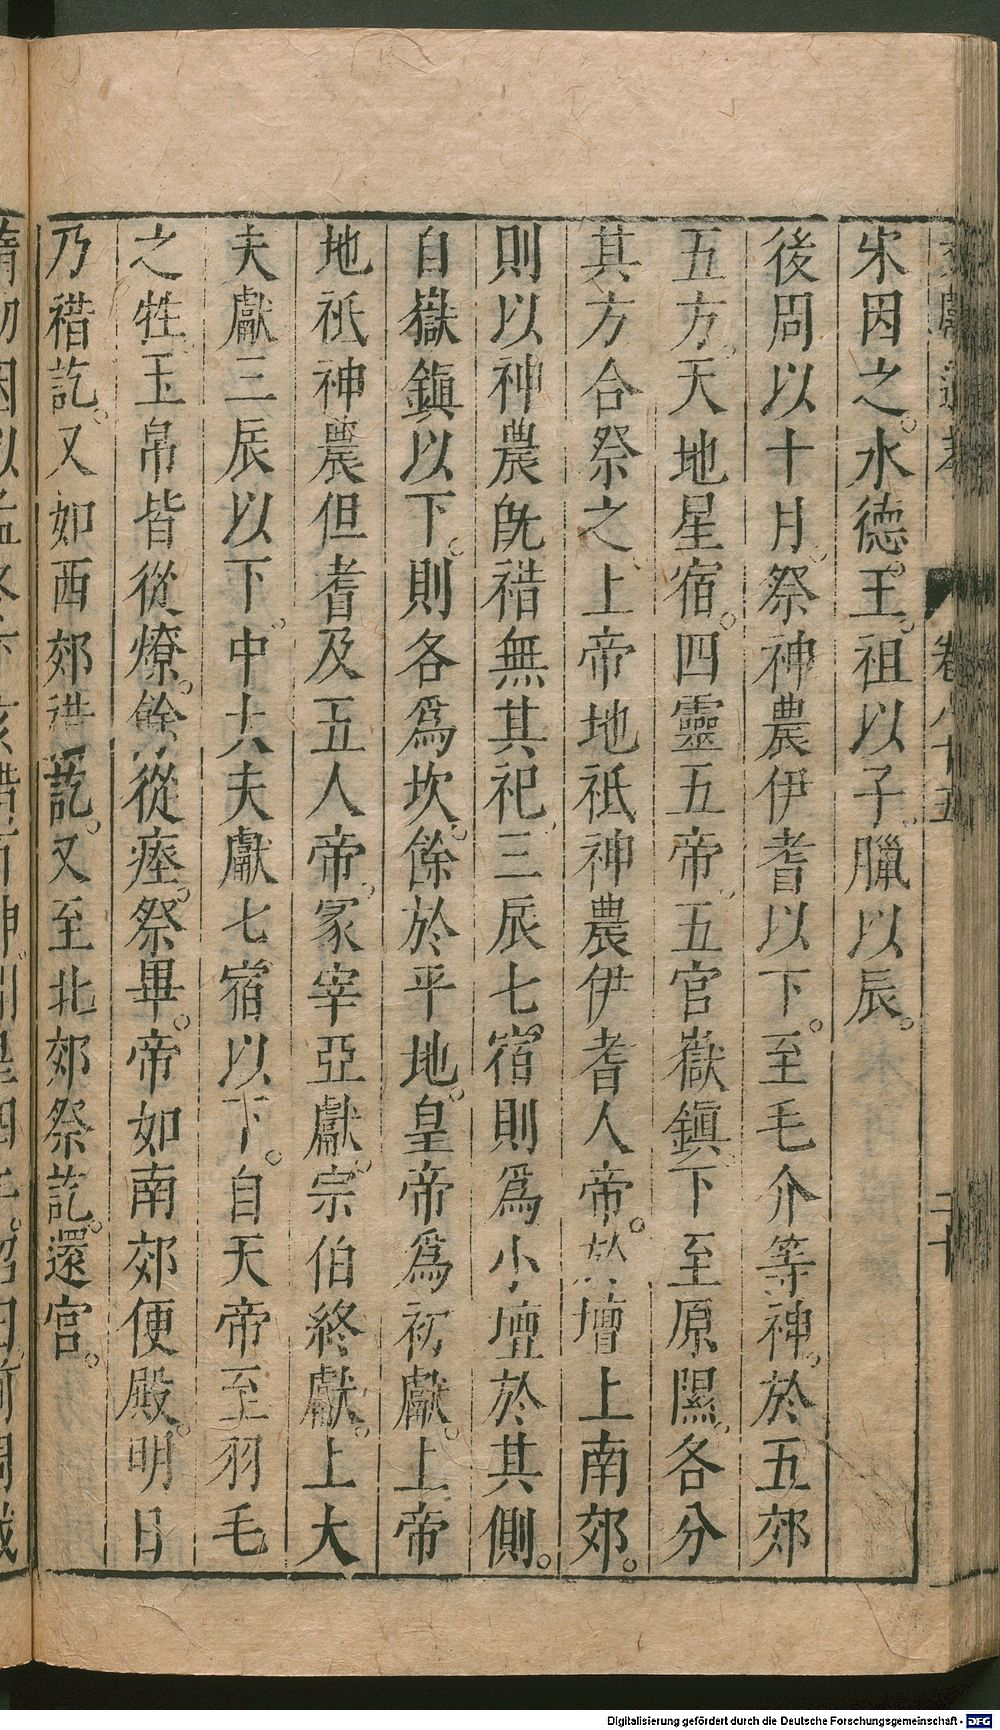 宋因之。水德。王。祖以子。臘以辰。
後周以十月。祭神農伊耆以下。至毛介等神。於五郊
五方。天地星宿。四靈五帝。五官嶽鎭。下至原隰。各分
其方合祭之。上帝地祇神農伊耆人帝。於壇上南郊。
則以神農旣禱無其祀。三辰七宿則爲小壇於其側。
自嶽鎭以下。則各爲坎。餘於平地。皇帝爲初獻。上帝
地祇神農但耆及五人帝。冢宰亞獻。宗伯終獻。上大
夫獻三辰以下。中大夫獻七宿以下。自天帝至羽毛
之牲玉帛皆從燎。餘從瘞。祭畢。帝如南郊便殿。明日
乃禮訖。又如西郊禮訖。又至北郊祭訖。還宮。
卷八十五
二十
Digitalisierung gefördert durch die Deutsche Forschungsgemeinschaft - DFG